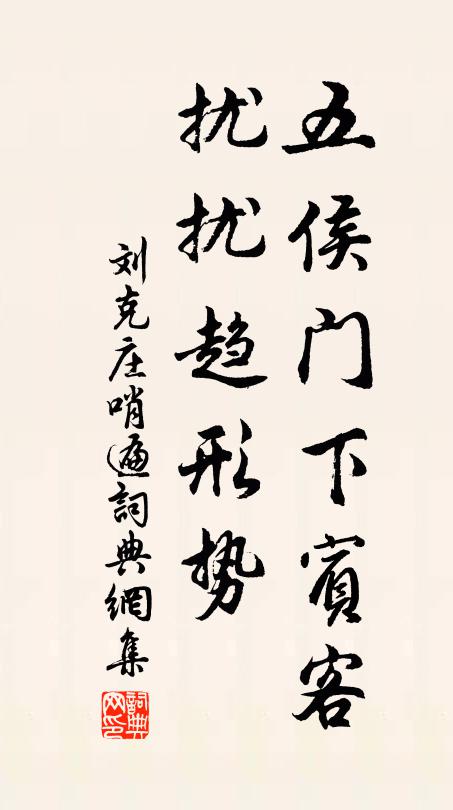 五侯门下賓客
扰扰趋形势
刘克庄哨遍詞典網集
詞典网印